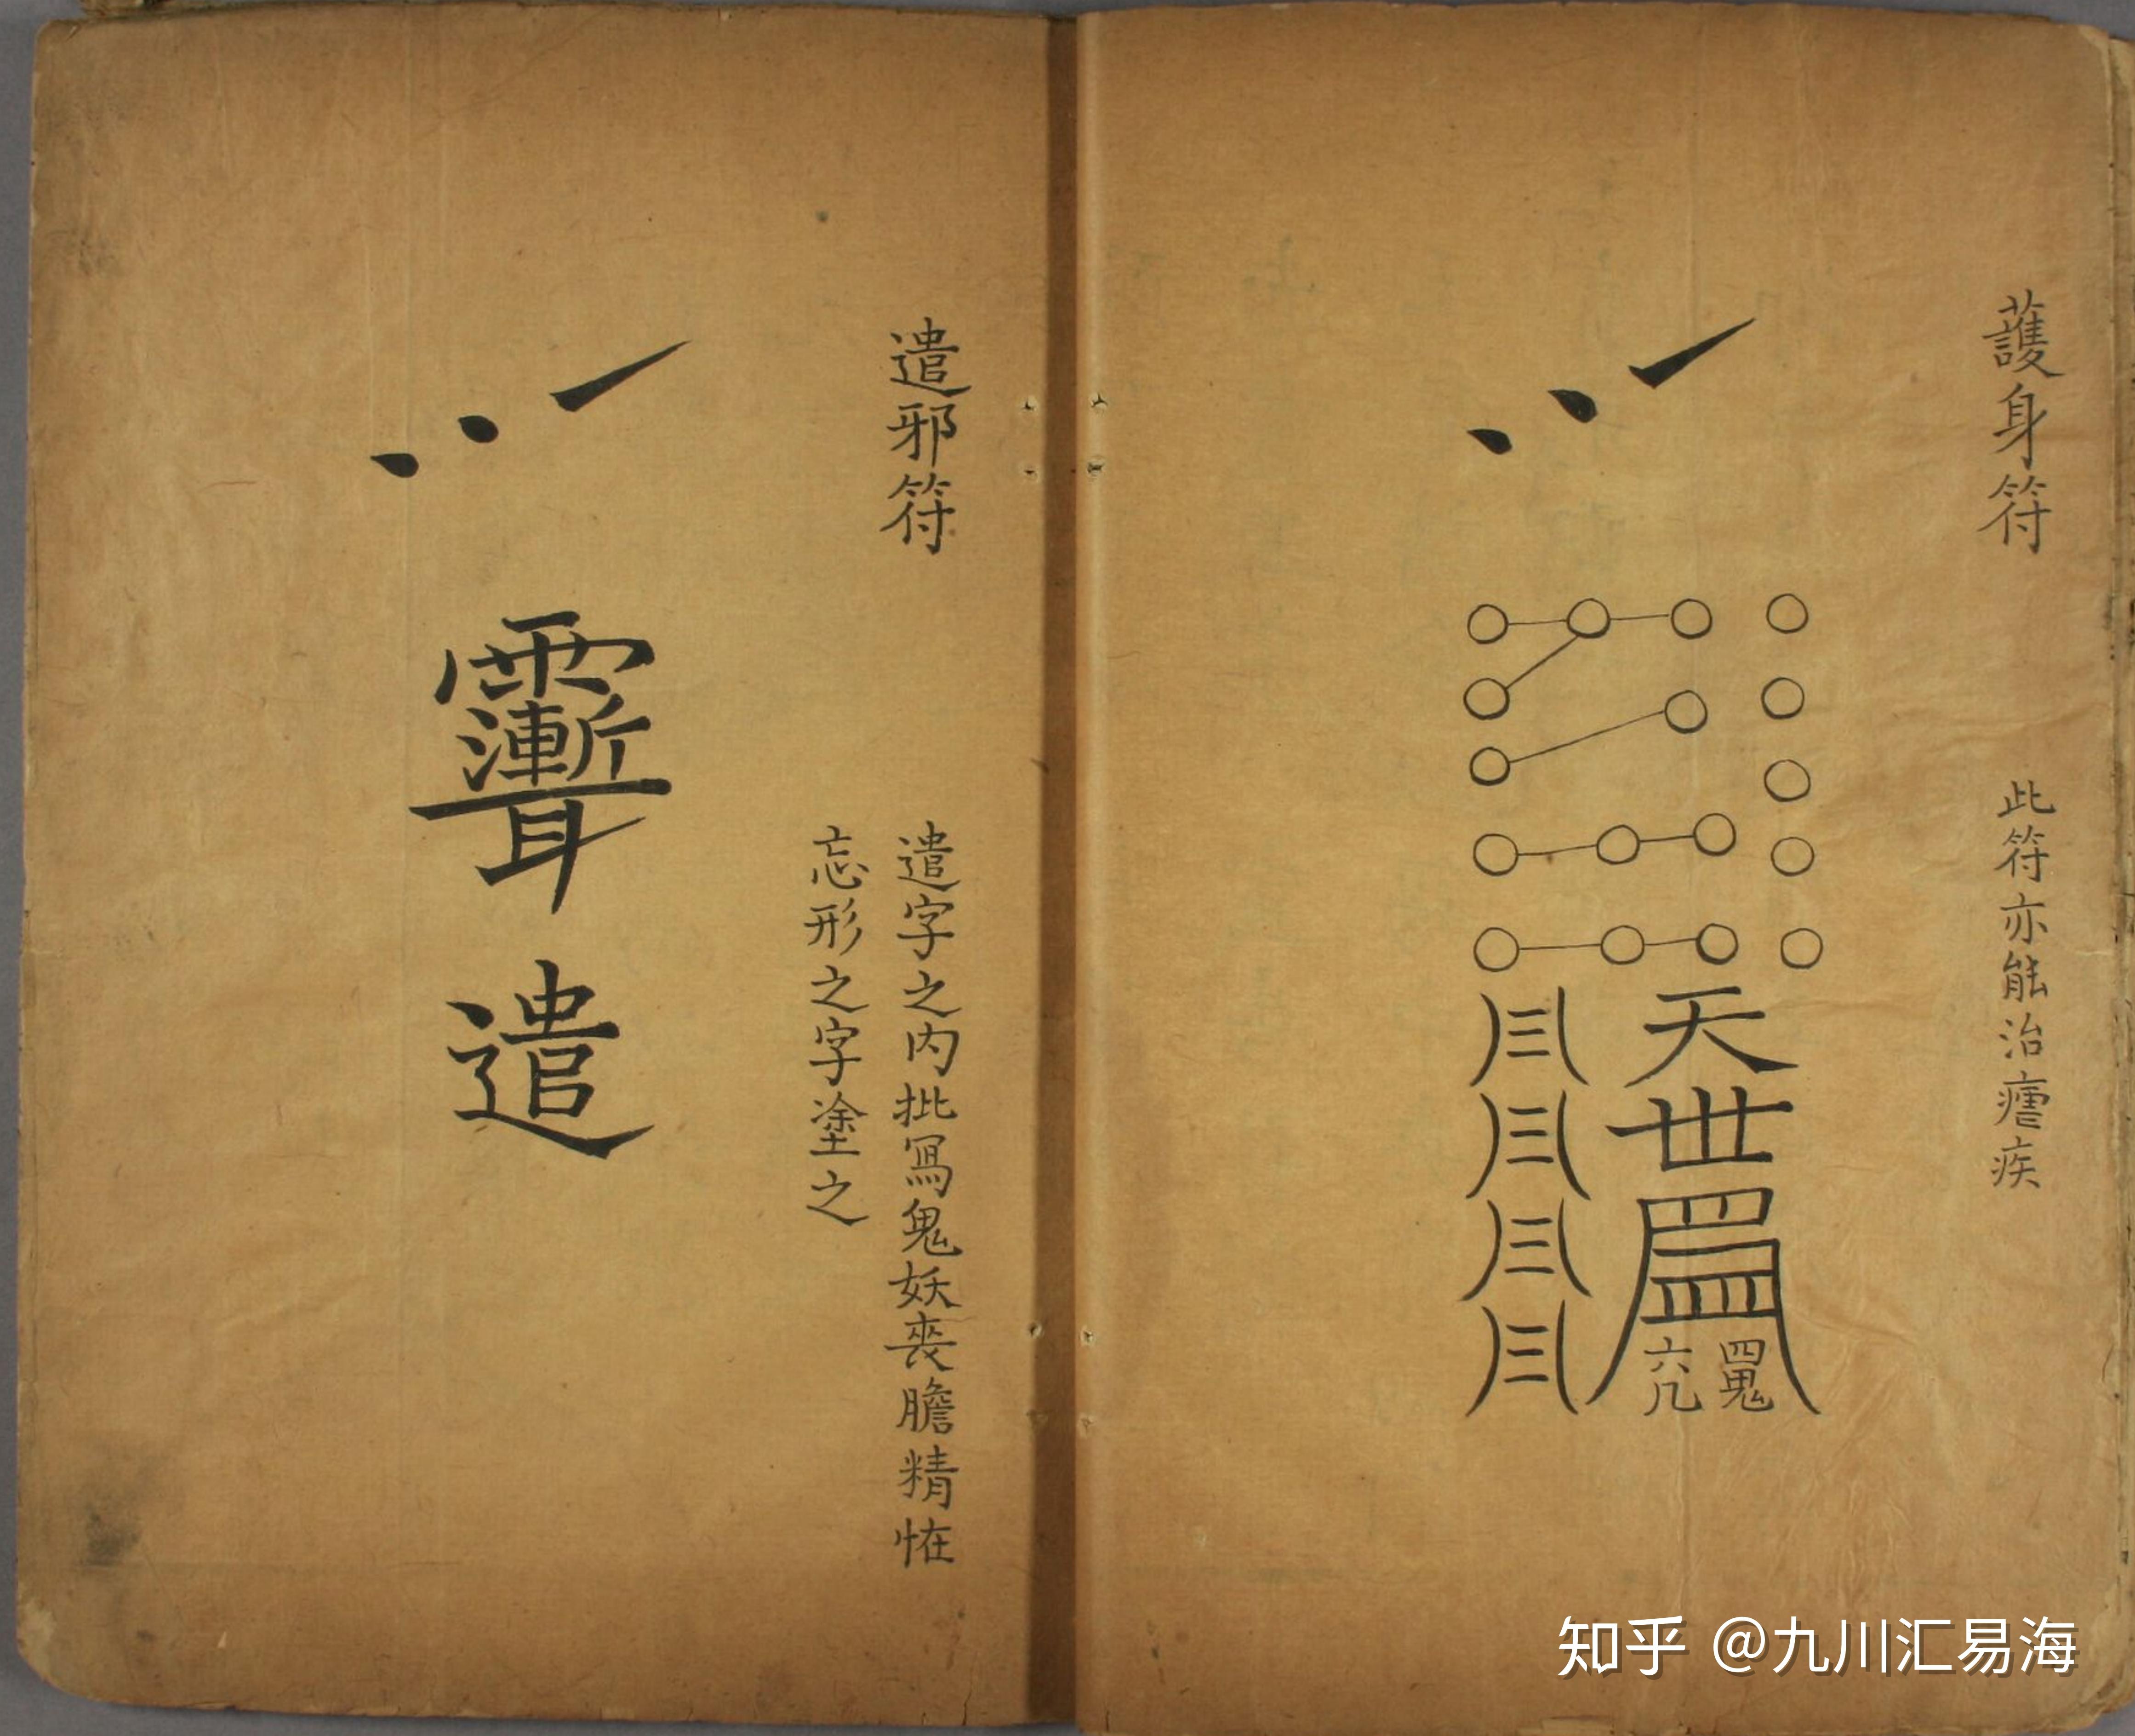 護身符
此符亦能治瘧疾
天
世
遣邪符
遣字之内批寫鬼妖喪膽精恠
忘形之字塗之
遣
知乎 @九川汇易海